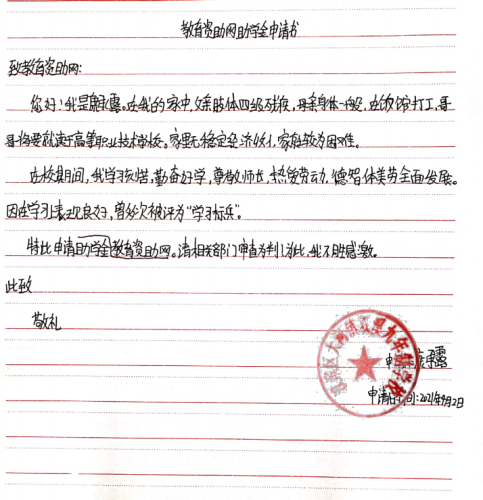 教育资助网助学金申请书
致教育资助网:
您好!我是露。在我的家中,父亲肢体四级残疾,母亲身体一般,在饭馆打工,哥
哥将要就读于高等职业技术学校。家里无稳定经济收入,家庭较为困难。
在校期间,我学习刻苦,勤奋好学,尊敬师长,热爱劳动,德智体美劳全面发展。
因在学习上表现良好,曾多次被评为“学习标兵”。
特此申请助学金教育资助网。请相关部门审查为盼,我不胜感激。
此致
敬礼
区大镇九年制学校
申请露
申请时间:2021年9月2日